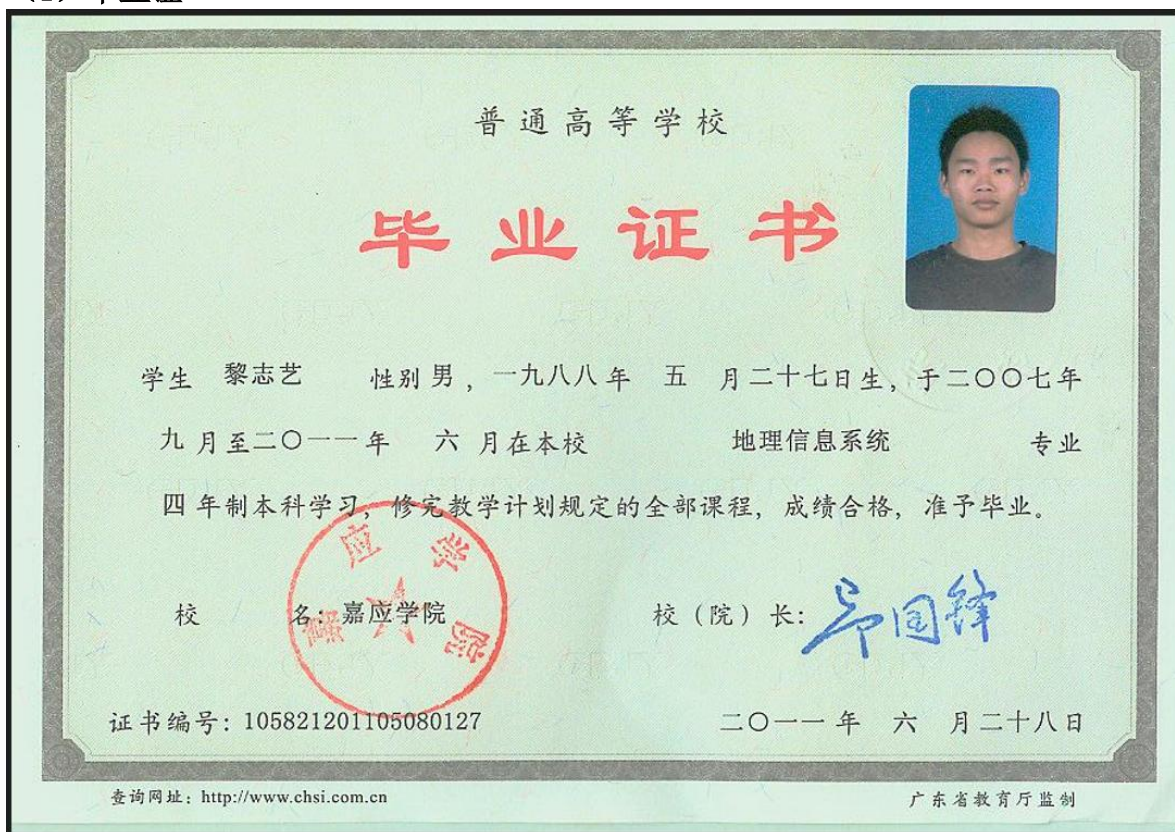 普通高等学校
毕业证书
学生 黎志艺 性别 男 ，一九八八年 五 月二十七日生，于二〇〇七年
九 月至二〇一一年 六 月在本校 地理信息系统 专业
四 年制本科学习，修完教学计划规定的全部课程，成绩合格，准予毕业。
校 名：嘉应学院 校（院）长：
嘉应学院
证书编号：105821201105080127 二〇一一年 六 月二十八日
查询网址：http://www.chsi.com.cn 广东省教育厅监制